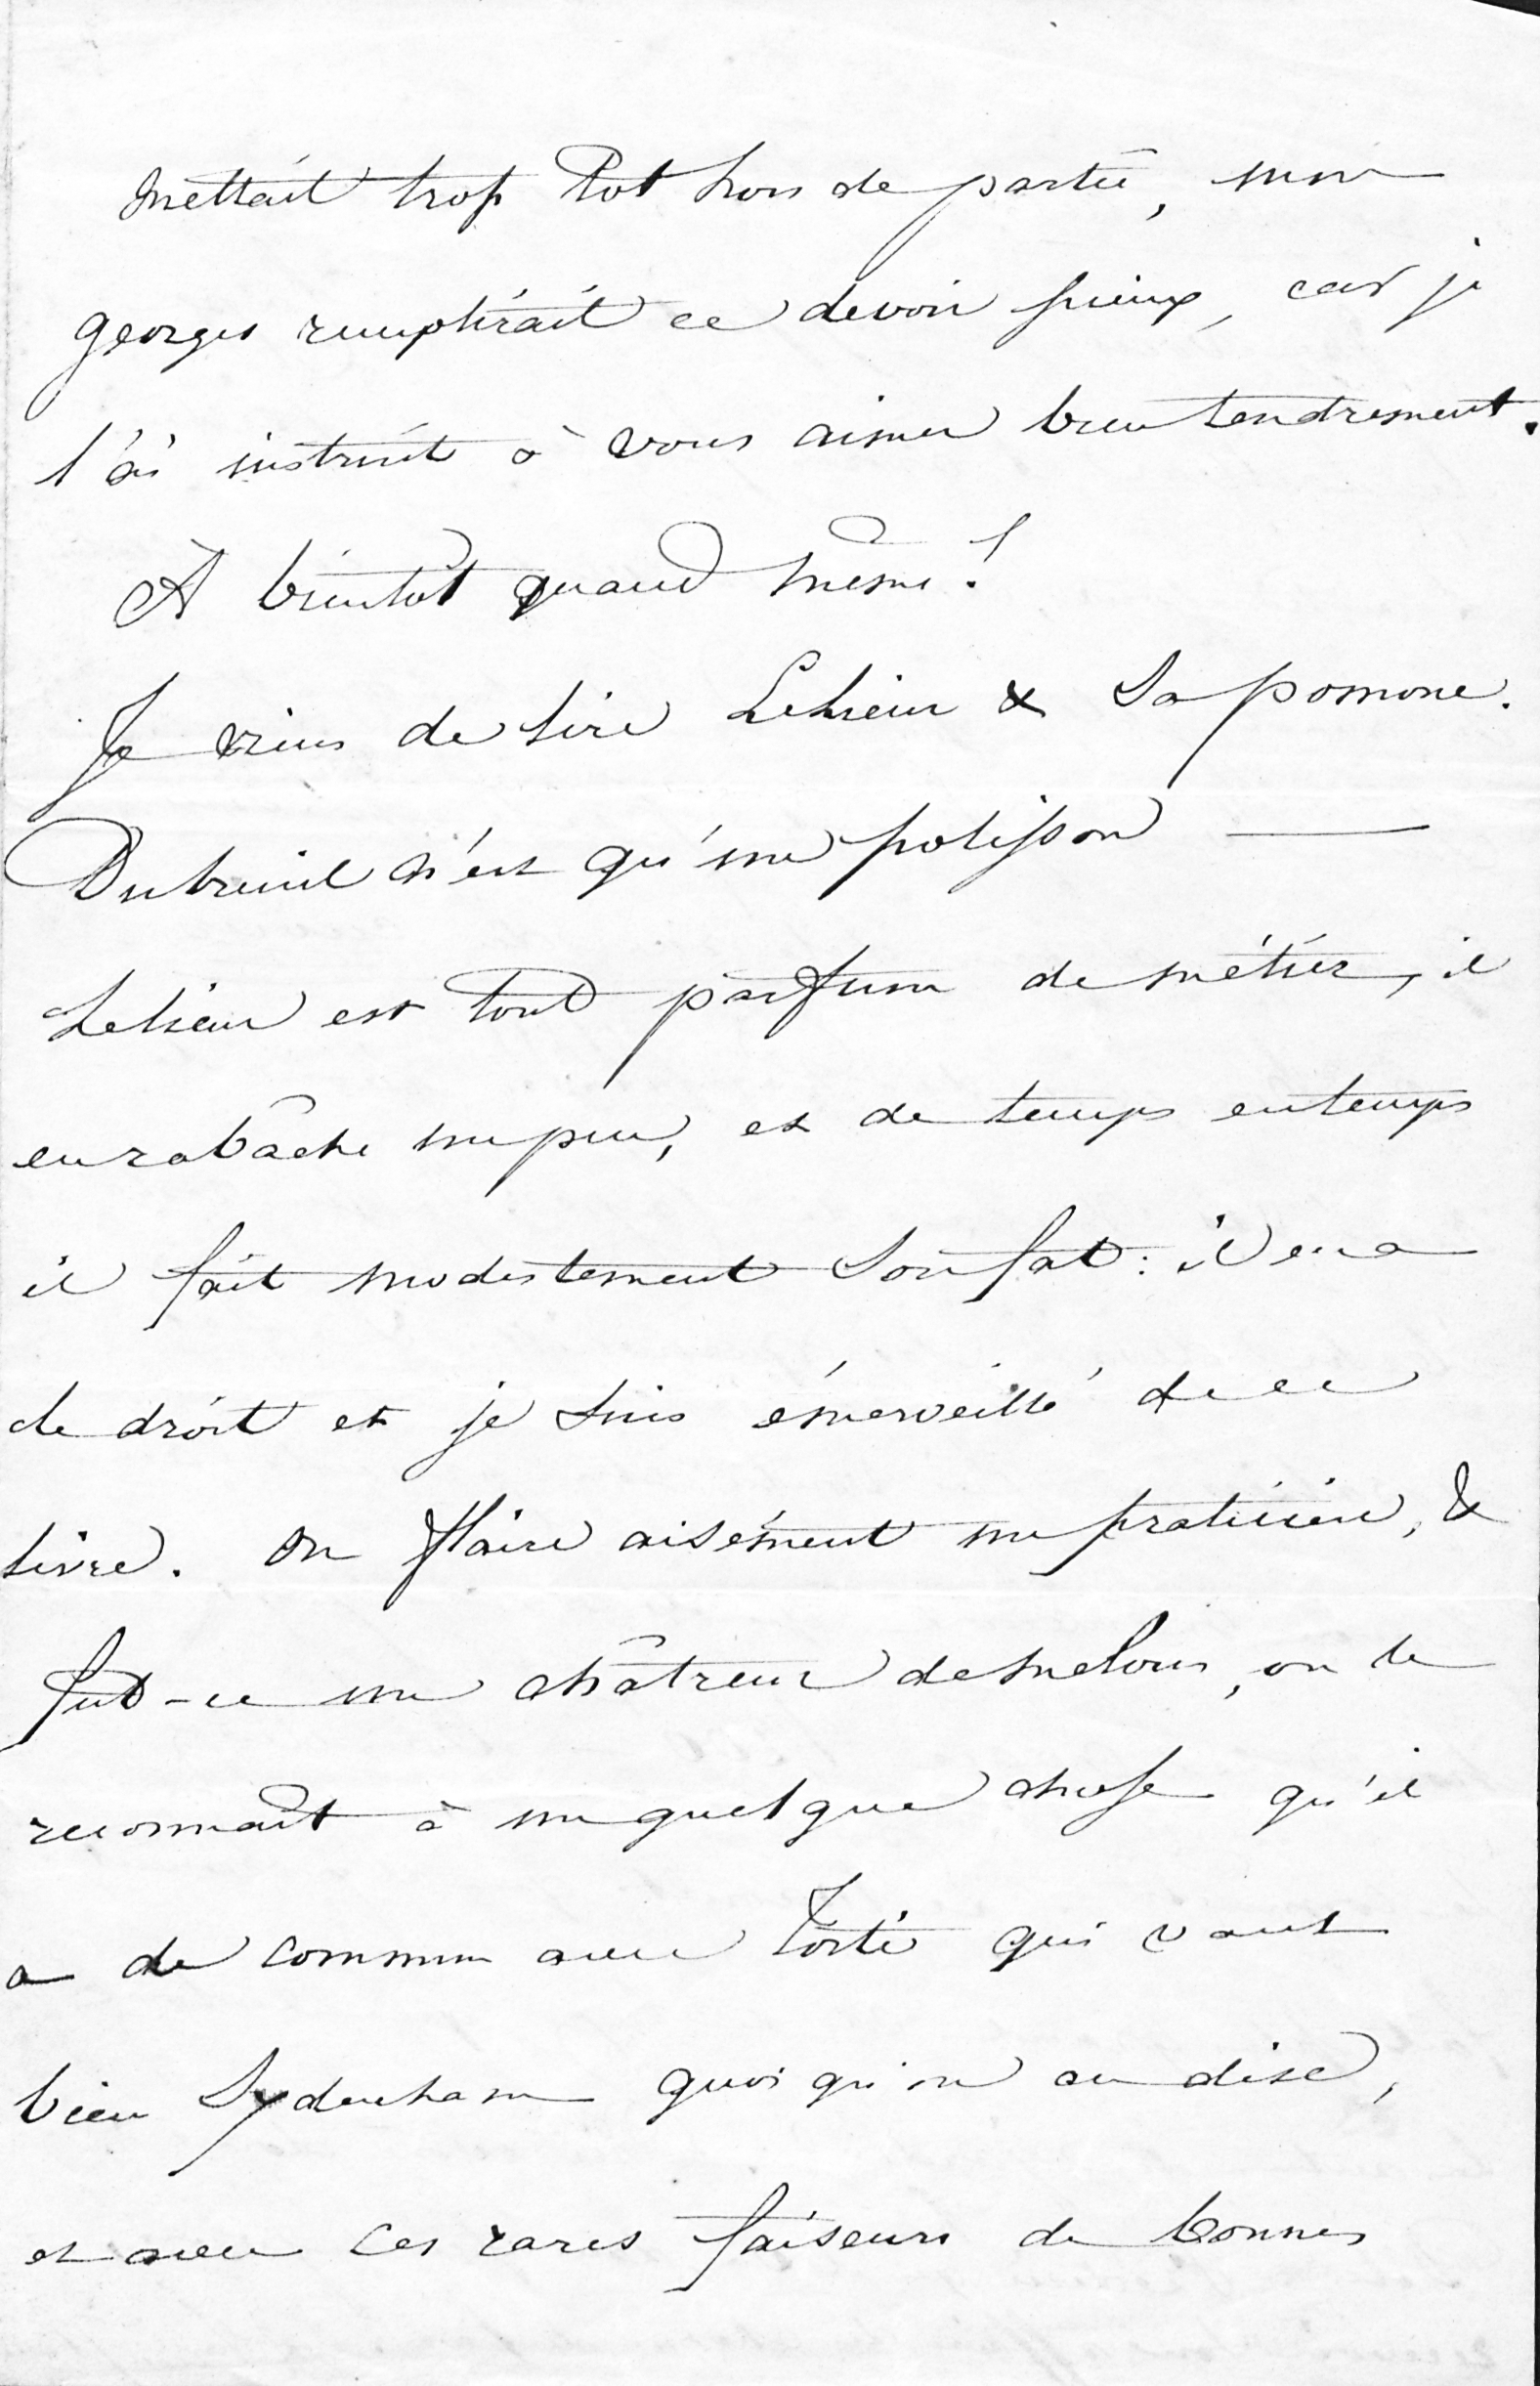 mettait trop tôt hors de partie, mon
georges remplirait ce devoir pieux, car je
l'ai instruit à vous aimer bien tendrement.
A bientôt quand même!
Je viens de lire Lelieur & Sa pomone.
Dubreuil n'est qu'un polisson —
Lelieur est tout parfum de métier, il
en rabâche un peu, et de temps en temps
il fait modestement son fat: il en a
le droit et je suis émerveillé de ce
livre. on flaire aisément un praticien, &
fut-ce un châtreur de melons, on le
reconnaît à un quelque chose qu'il
a de commun avec Torti qui vaut
bien Sydenham quoiqu'on en dise,
et avec ces rares faiseurs de bonnes